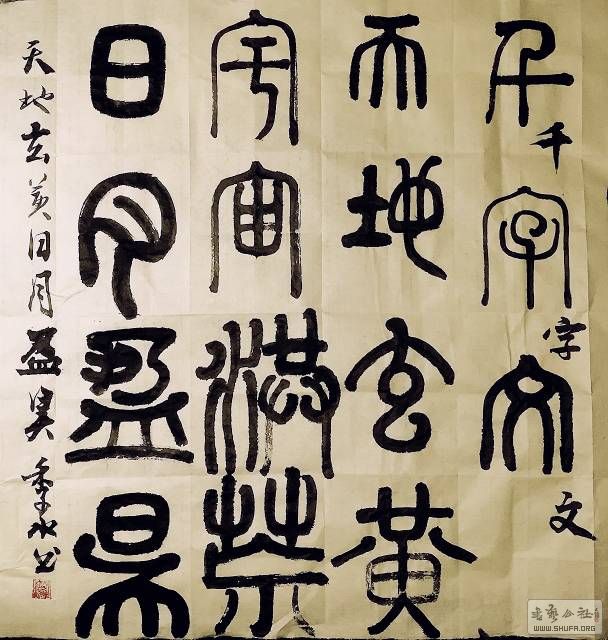 千字文
千字文
天地玄黄
宇宙洪荒
日月盈昃
天地玄黄日月盈昃书
书艺公社
WWW.SHUFA.ORG